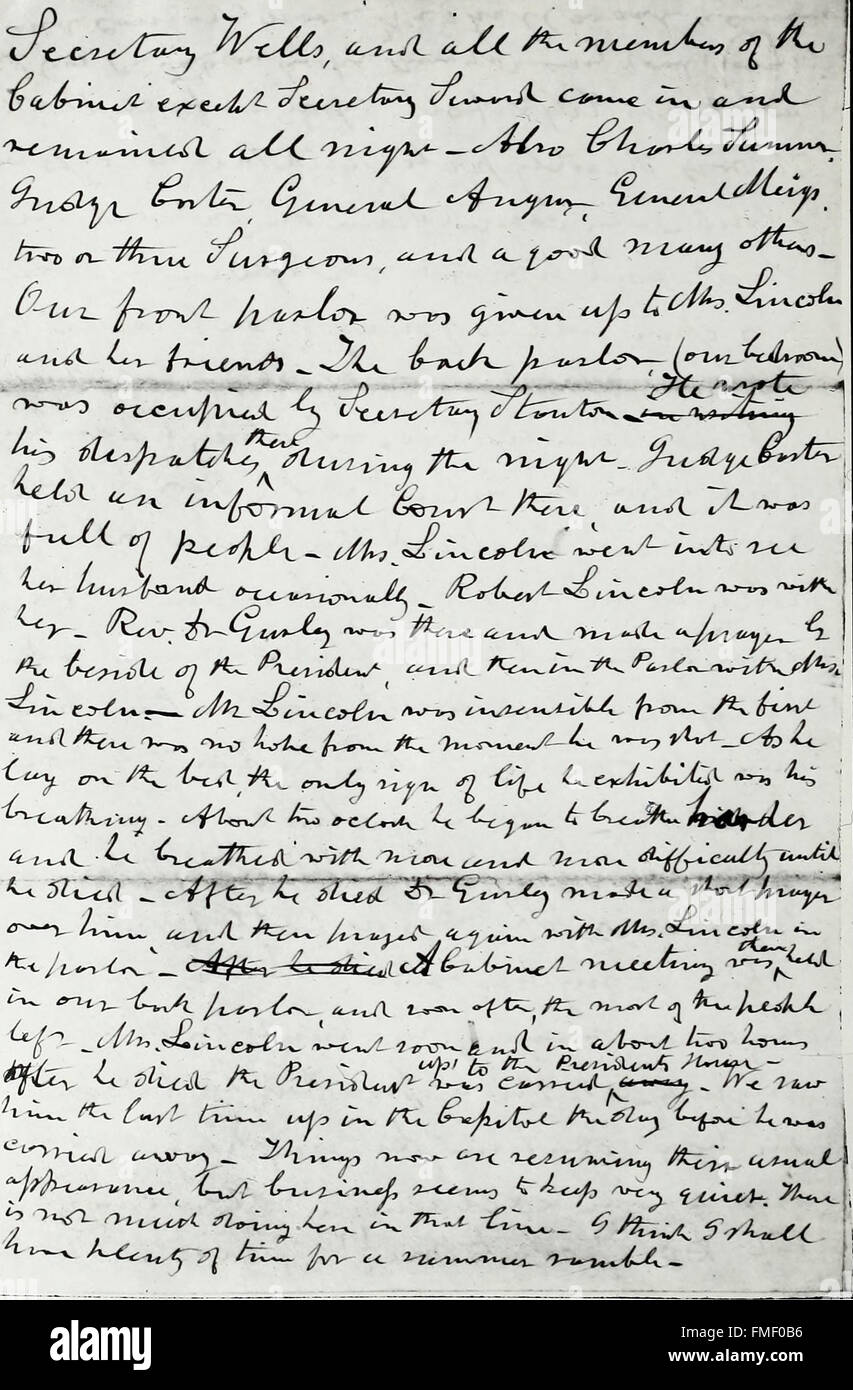 Secretary Wells, and all the members of the
Cabinet except Secretary Seward came in and
remained all night – Also Charles Sumner,
Judge Carter, General Augur, General Meigs,
two or three Surgeons, and a good many others –
Our front parlor was given up to Mrs. Lincoln
and her friends – The back parlor (our bedroom)
was occupied by Secretary Stanton – He wrote
in writing
his despatches there during the night – Judge Carter
held an informal Court there, and it was
full of people – Mrs. Lincoln went in to see
her husband occasionally – Robert Lincoln was with
her – Rev. Dr Gurley was there and made a prayer by
the beside of the President, and then in the Parlor with Mrs.
Lincoln – Mr Lincoln was insensible from the first
and there was no hope from the moment he was shot – As he
lay on the bed, the only sign of life he exhibited was his
breathing – About two oclock he began to breathe harder
and he breathed with more and more difficulty until
he died – After he died Dr Gurley made a short prayer
over him, and then prayed again with Mrs. Lincoln in
the parlor – After he died A Cabinet meeting was then held
in our back parlor, and soon after, the most of the people
left – Mrs. Lincoln went soon and in about two hours
after he died the President was carried away up to the Presidents House – We saw
him the last time up in the Capitol the day before he was
carried away – Things now are resuming their usual
appearance, but business seems to keep very quiet. There
is not much doing here in that line – I think I shall
have plenty of time for a summer ramble –
alamy
alamy stock photo
FMF0B6
www.alamy.com